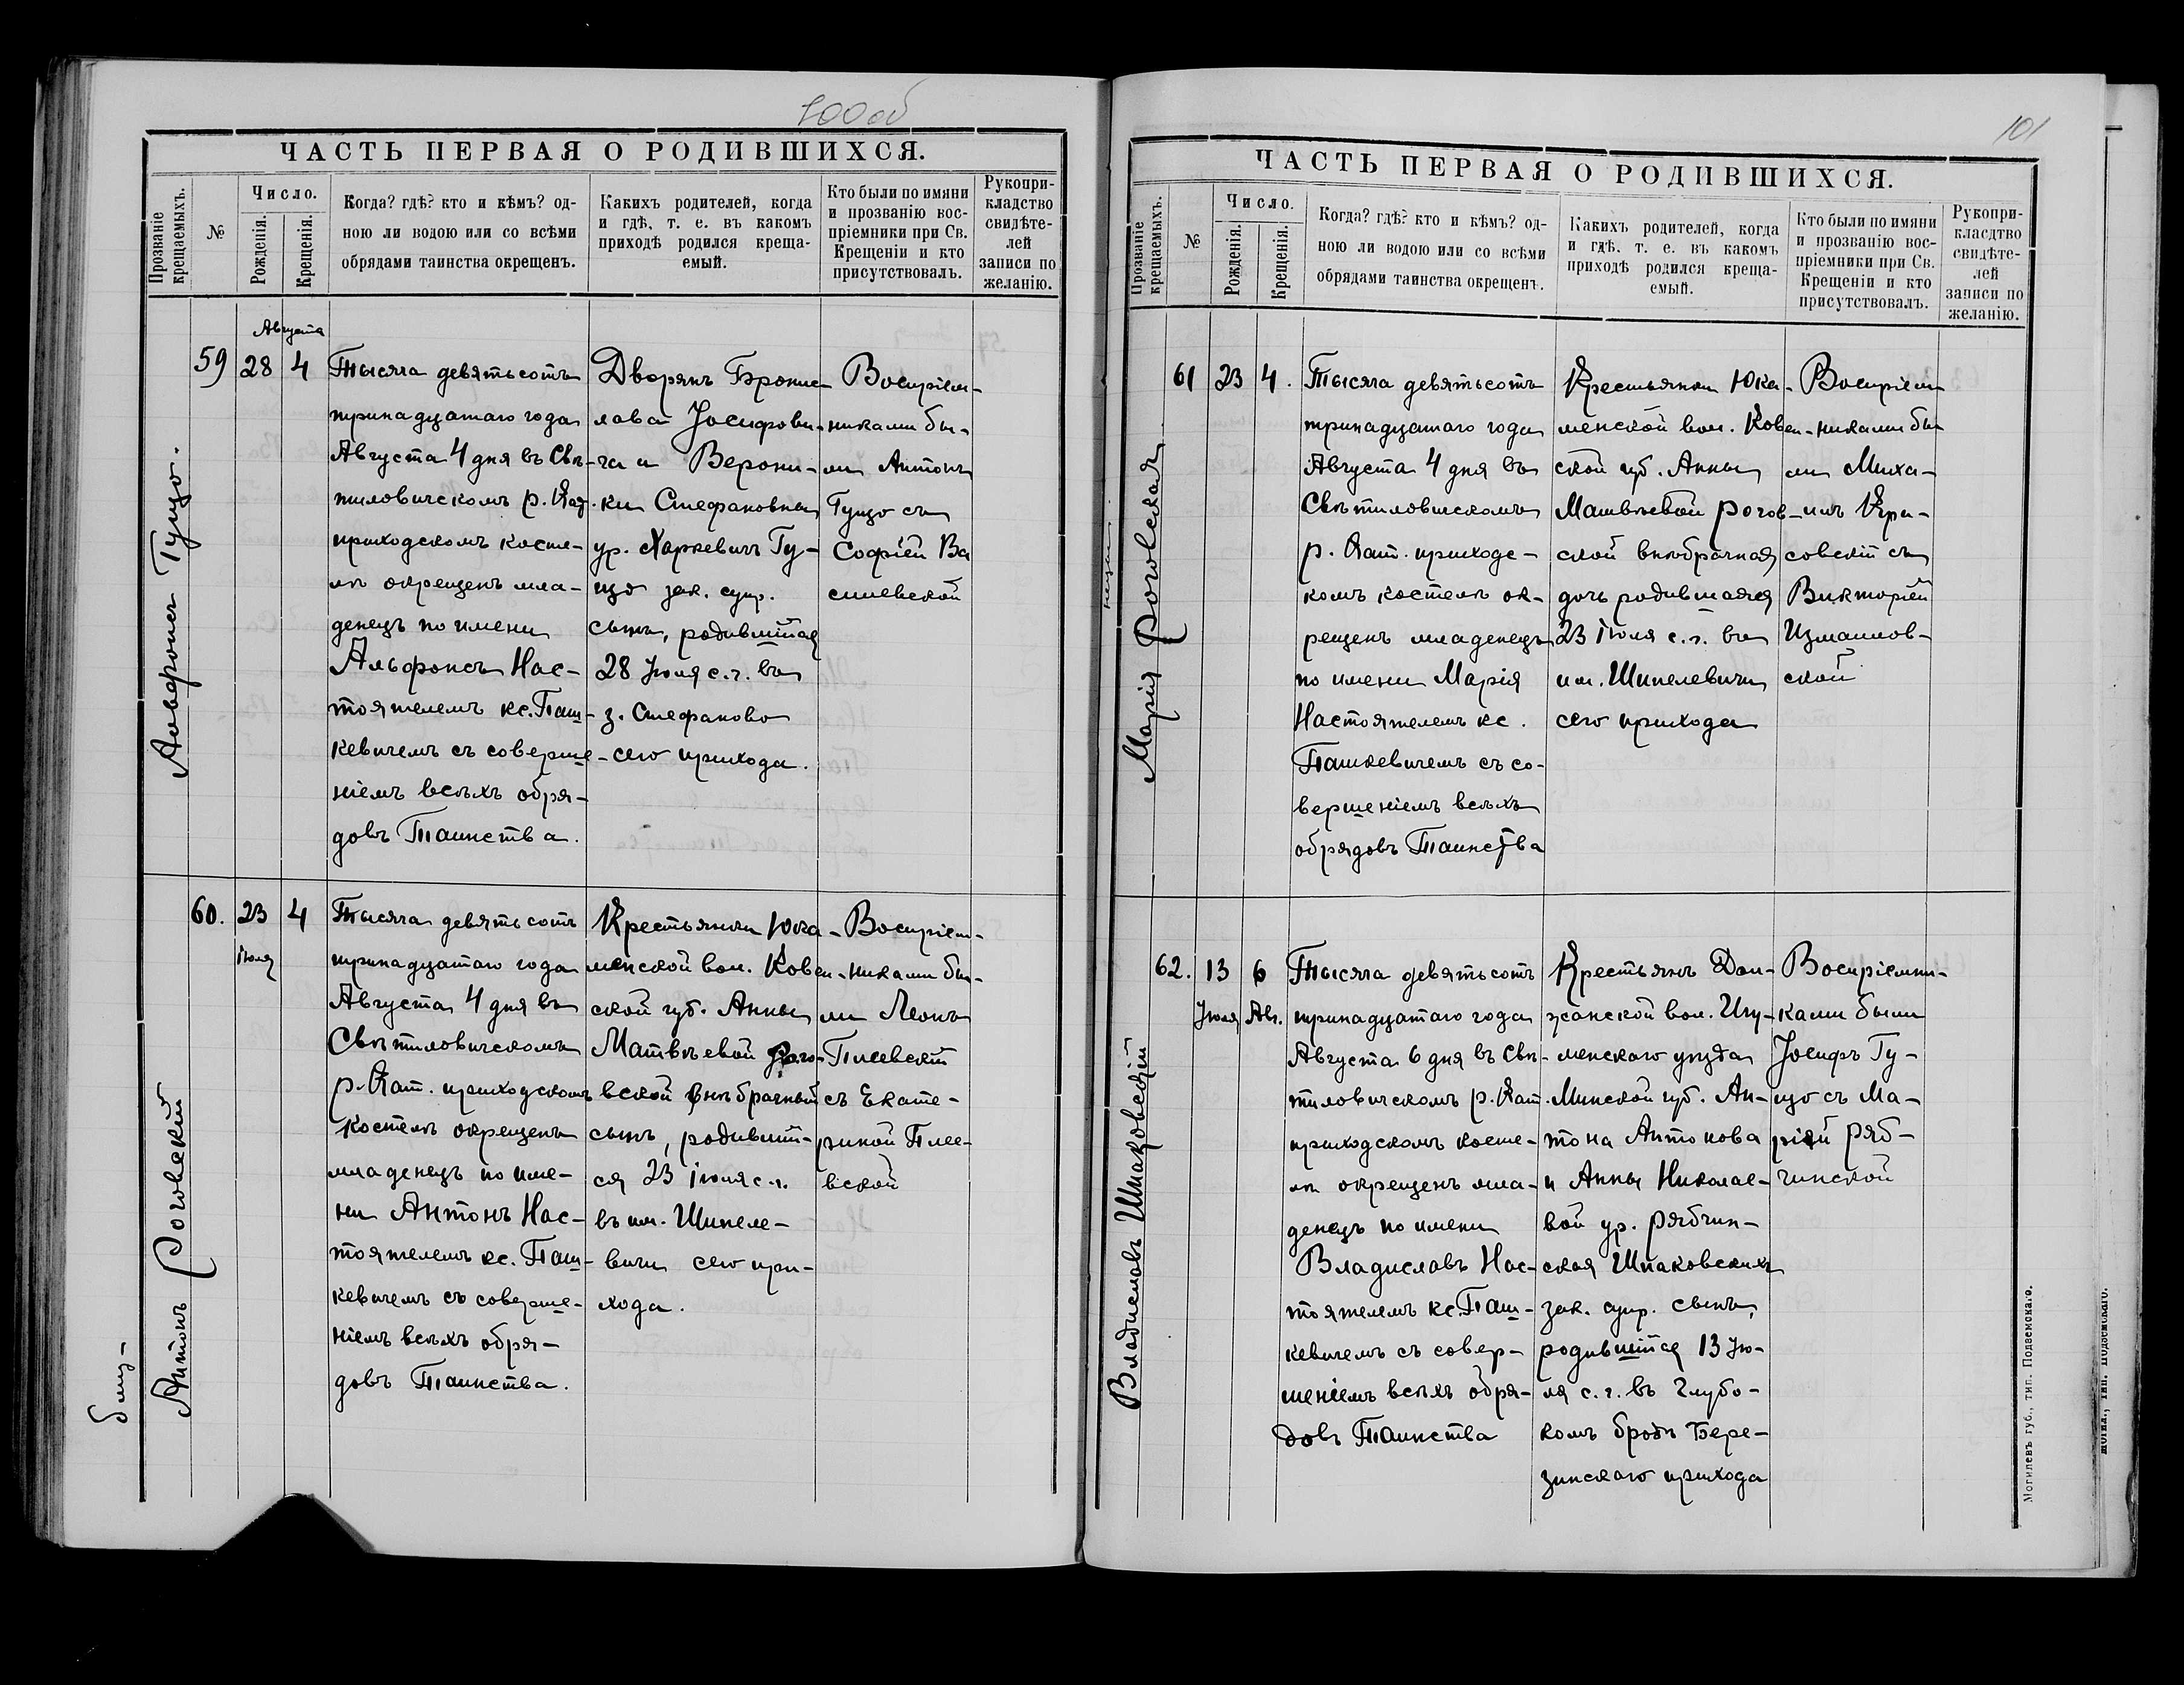 100 об
ЧАСТЬ ПЕРВАЯ О РОДИВШИХСЯ.
Прозваніе крещаемыхъ.
№
Число.
Рожденія.
Крещенія.
Когда? гдѣ? кто и кѣмъ? од-
ною ли водою или со всѣми
обрядами таинства окрещенъ.
Какихъ родителей, когда
и гдѣ, т. е. въ какомъ
приходѣ родился креща-
емый.
Кто были по имяни
и прозванію вос-
пріемники при Св.
Крещеніи и кто
присутствовалъ.
Рукопри-
кладство
свидѣте-
лей
записи по
желанію.
Альфонсъ Гуцо.
59
Августа
28
4
Тысяча девятьсотъ
тринадцатаго года
Августа 4 дня въ Свѣ-
тиловичскомъ р. Кат.
приходскомъ косте-
лѣ окрещенъ мла-
денецъ по имени
Альфонсъ Нас-
тоятелемъ кс. Паш-
кевичемъ съ соверше-
ніемъ всѣхъ обря-
довъ Таинства.
Дворянъ Бронис-
лава Іосифови-
ча и Верони-
ки Стефановны
ур. Харкевичъ Гу-
цо зак. супр.
сынъ, родившійся
28 Іюля с. г. въ
з. Стефаново
сего прихода.
Воспріем-
никами бы-
ли Антонъ
Гуцо съ
Софіей Ва
силевской
близ-
Антонъ Роговскій
60.
23
Іюля
4
Тысяча девятьсотъ
тринадцатаго года
Августа 4 дня въ
Свѣтиловичскомъ
р. Кат. приходскомъ
костелѣ окрещенъ
младенецъ по име-
ни Антонъ Нас-
тоятелемъ кс. Паш-
кевичемъ съ соверше-
ніемъ всѣхъ обря-
довъ Таинства.
Крестьянки Юка-
менской вол. Ковен-
ской губ. Анны
Матвѣевой Рого-
вской внѣбрачный
сынъ, родившій-
ся 23 іюля с. г.
въ им. Шипеле-
вичи сего при-
хода.
Воспріем-
никами бы-
ли Леонъ
Плевскій
съ Екате-
риной Плев-
вской
101
ЧАСТЬ ПЕРВАЯ О РОДИВШИХСЯ.
Прозваніе крещаемыхъ.
№
Число.
Рожденія.
Крещенія.
Когда? гдѣ? кто и кѣмъ? од-
ною ли водою или со всѣми
обрядами таинства окрещенъ.
Какихъ родителей, когда
и гдѣ, т. е. въ какомъ
приходѣ родился креща-
емый.
Кто были по имяни
и прозванію вос-
пріемники при Св.
Крещеніи и кто
присутствовалъ.
Рукопри-
класдтво
свидѣте-
лей
записи по
желанію.
Марія Роговская
61
23
4.
Тысяча девятьсотъ
тринадцатаго года
Августа 4 дня въ
Свѣтиловичскомъ
р. Кат. приходс-
комъ костелѣ ок-
рещенъ младенецъ
по имени Марія
Настоятелемъ кс.
Пашкевичемъ съ со-
вершеніемъ всѣхъ
обрядовъ Таинства
Крестьянки Юка-
менской вол. Ковен-
ской губ. Анны
Матвѣевой Рогов-
ской внѣбрачная
дочь родившаяся
23 іюля с. г. въ
им. Шипелевичи
сего прихода
Воспріем-
никами бы-
ли Миха-
илъ
совскій съ
Викторіей
Измаилов-
ской
Владиславъ Шпаковскій
62.
13
Іюля
6
Авг.
Тысяча девятьсотъ
тринадцатаго года
Августа 6 дня въ Свѣ-
тиловичскомъ р. Кат.
приходскомъ косте-
лѣ окрещенъ мла-
денецъ по имени
Владиславъ Нас-
тоятелемъ кс. Паш-
кевичемъ съ совер-
шеніемъ всѣхъ обря-
довъ Таинства
Крестьянъ Дол-
жанской вол. Игу-
менскаго уѣзда
Минской губ. Ан-
тона Антонова
и Анны Николае-
вой ур. Рябчин-
ская Шпаковскихъ
зак. супр. сынъ,
родившійся 13 Ію-
ля с. г. въ Глубо-
комъ бродѣ Бере-
зинскаго прихода
Воспріемни-
ками были
Іосифъ Гу-
цо съ Ма-
ріей Ряб-
чинской
Могилевъ губ., тип. Подземскаго.